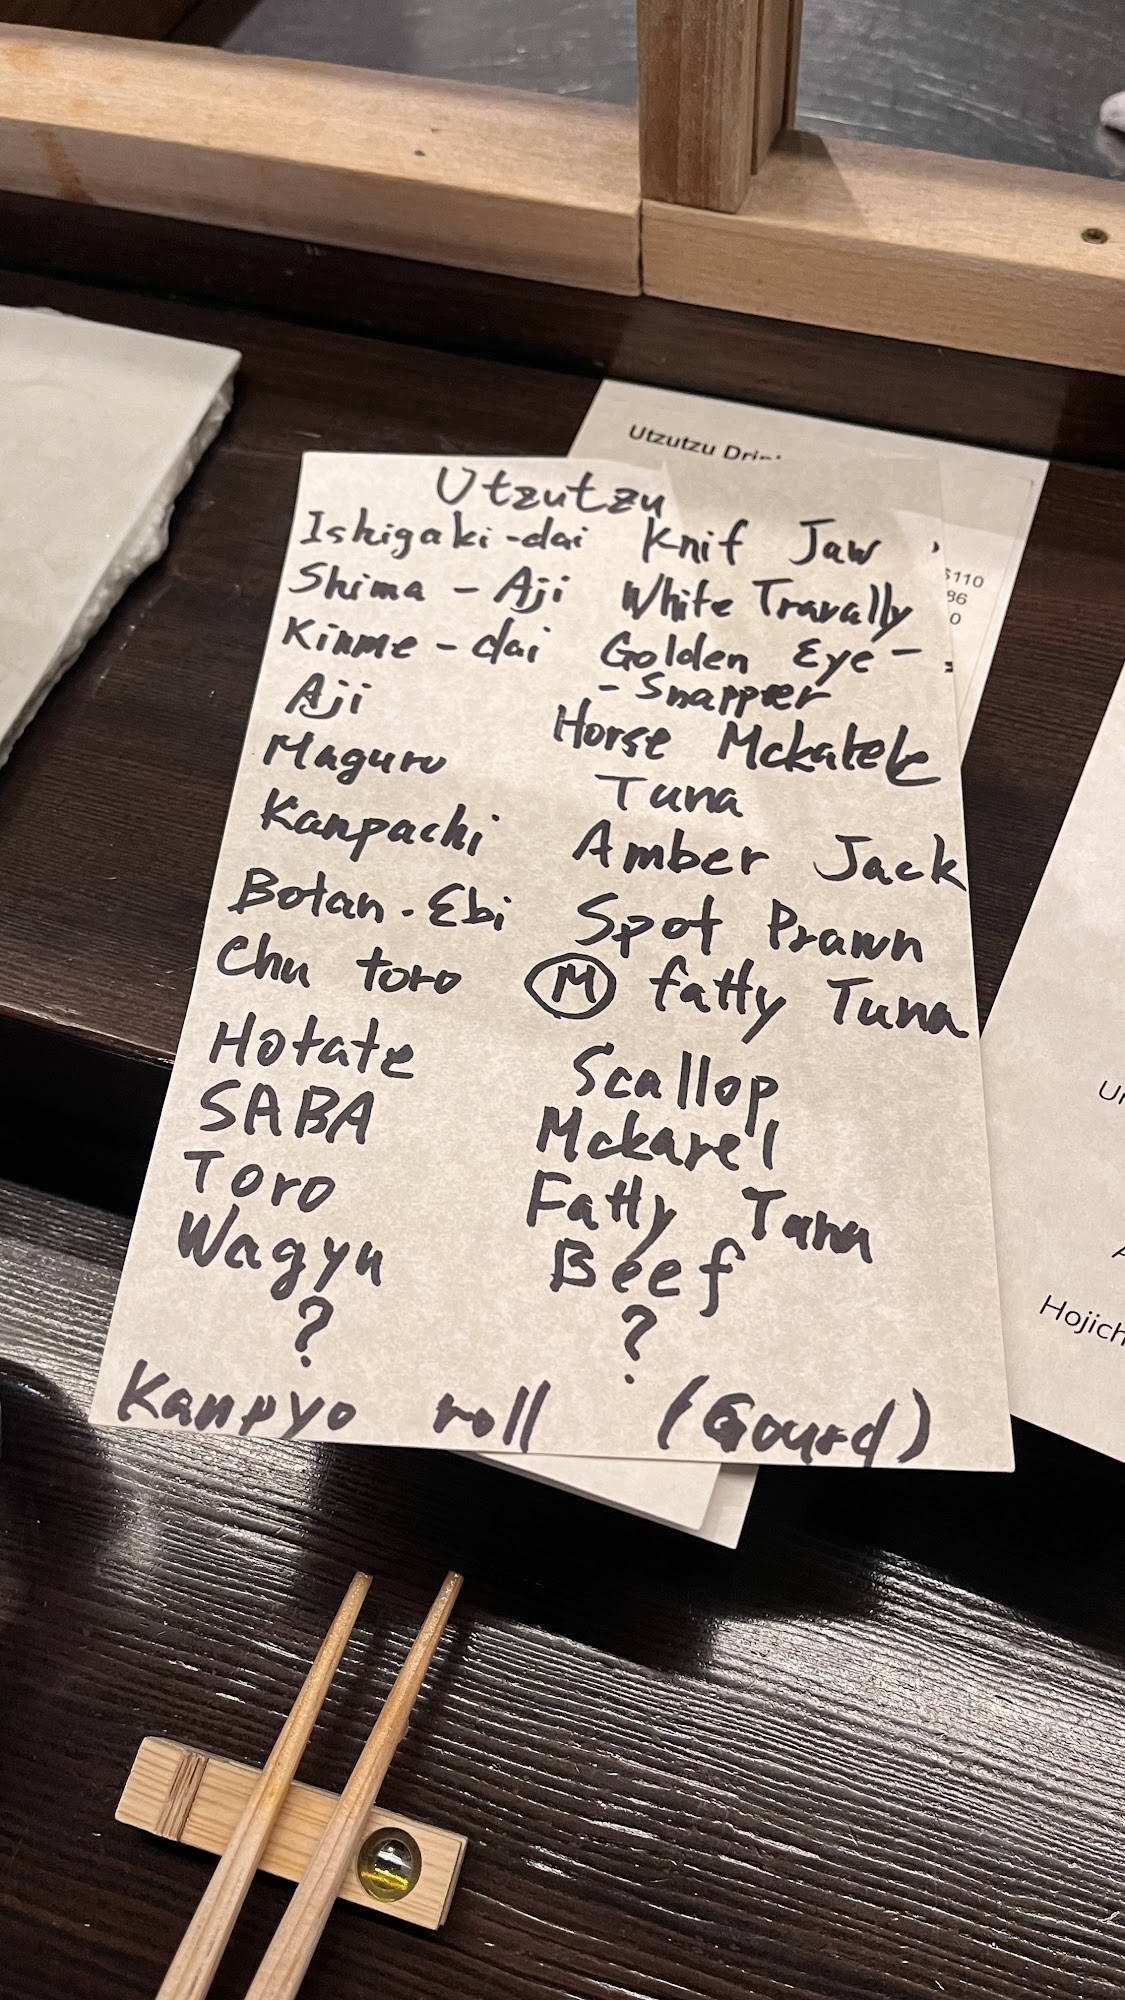 Utzutzu Drin
Utzutzu
Ishigaki-dai Knif Jaw
Shima - Aji White Travally
Kinme - dai Golden Eye -
- Snapper
Aji Horse Mckalele
Maguro Tuna
Kanpachi Amber Jack
Botan-Ebi Spot Prawn
Chu toro M fatty Tuna
Hotate Scallop
SABA Mckarel
Toro Fatty Tuna
Wagyu Beef
? ?
Kanpyo roll (Gourd)
$110
86
0
Hojich